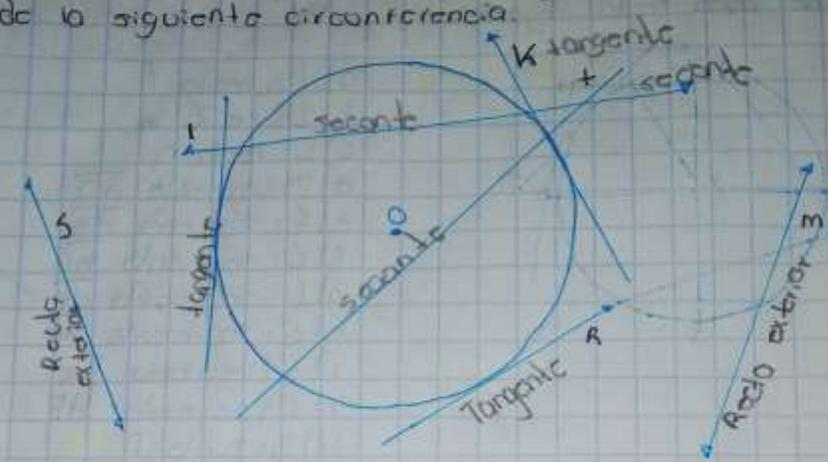 de la siguiente circunferencia.
K tangente
t
secante
1
secante
S
Recta
exterior
tangente
O
secante
R
Tangente
m
Recta exterior